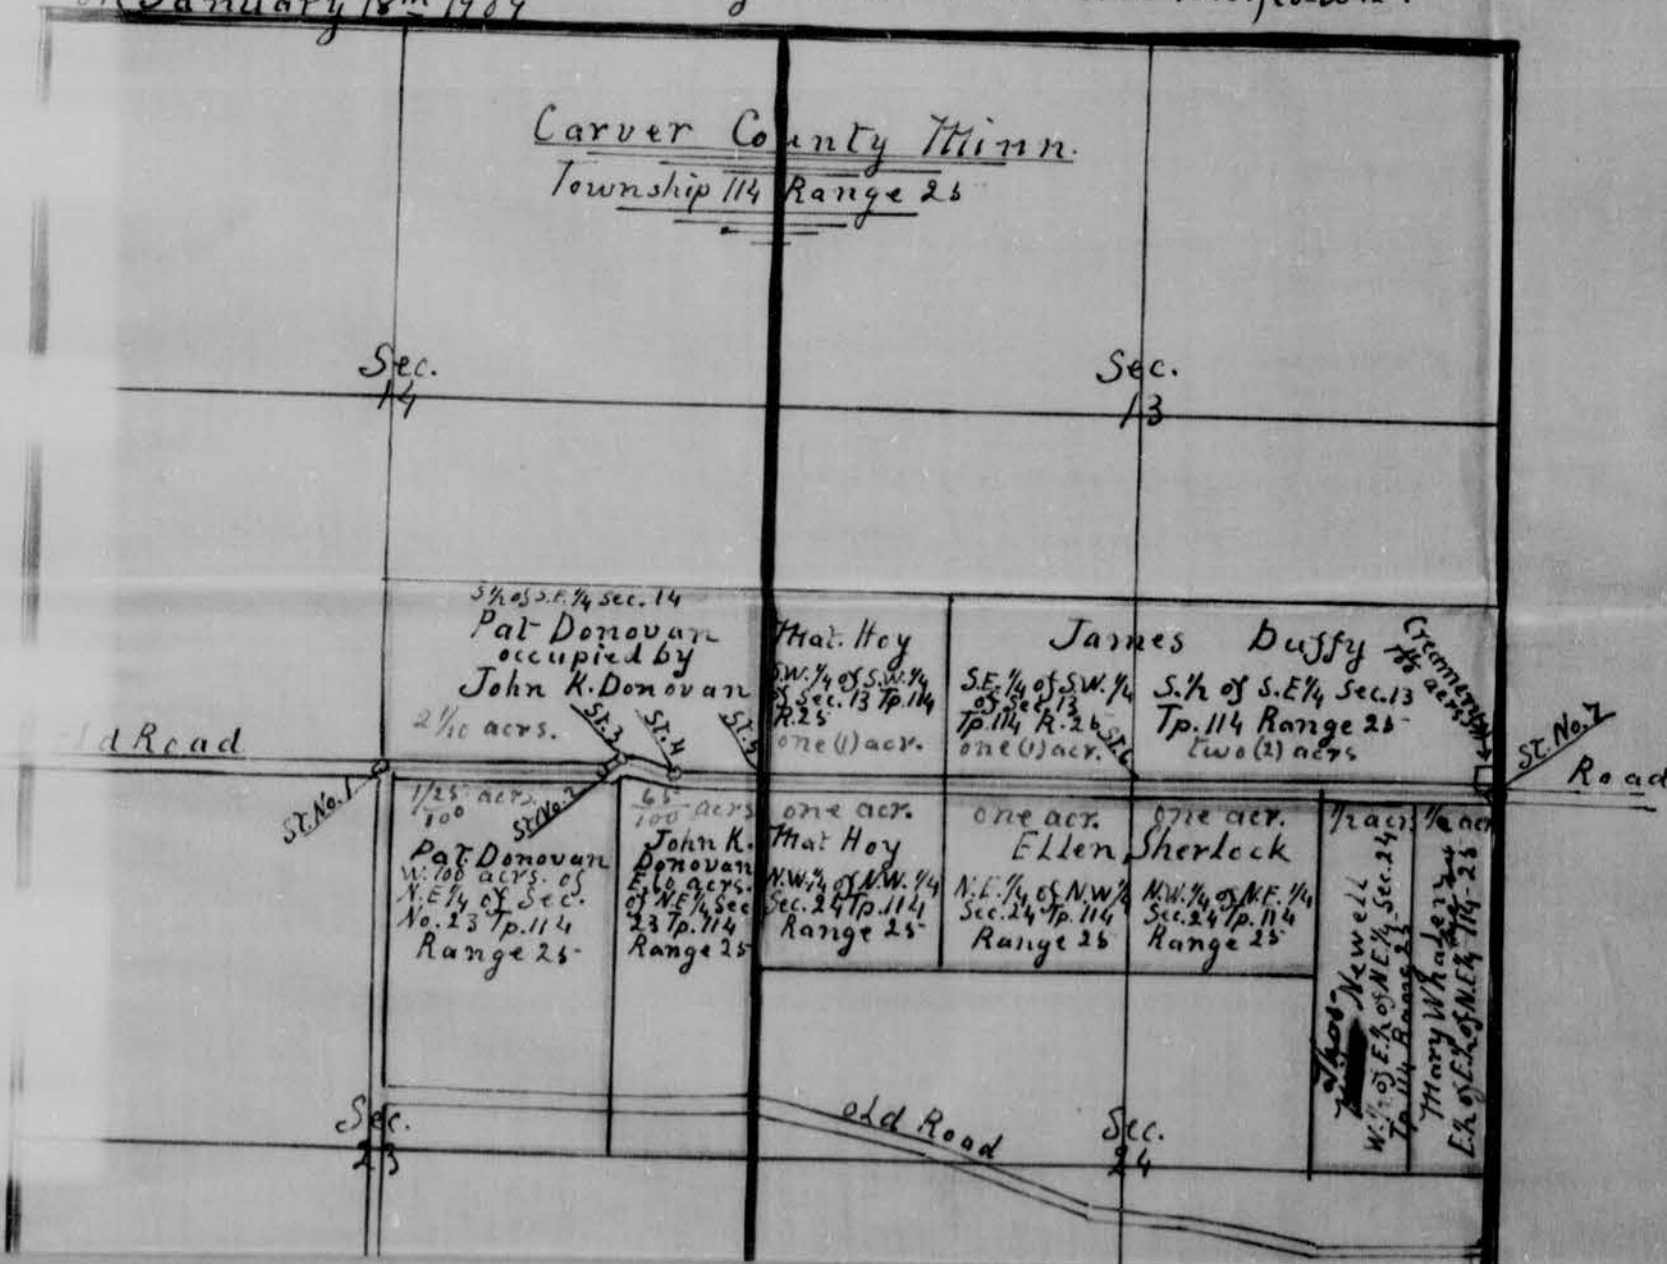 on January 18th 1909
Carver County Minn.
Township 114 Range 25
Sec.
14
Sec.
13
S 1/2 of S.E. 1/4 Sec. 14
Pat Donovan
occupied by
John K. Donovan
2 1/10 acrs.
St. 3
St. 4
St. 5
Mat. Hoy
S.W. 1/4 of S.W. 1/4
of Sec. 13 Tp. 114
R. 25
one (1) acr.
James Duffy
S.E. 1/4 of S.W. 1/4
of Sec. 13
Tp. 114 R. 25
one (1) acr.
St. 6
S. 1/2 of S.E 1/4 Sec. 13
Tp. 114 Range 25
two (2) acrs
Creamery
acrs
St. No. 7
Road
ld Road
St. No. 1
1/25 acrs.
100
St. No. 2
Pat Donovan
W. 100 acrs. of
N.E 1/4 of Sec.
No. 23 Tp. 114
Range 25
65
100 acrs
John K.
Donovan
E. 60 acrs.
of N.E 1/4 Sec
23 Tp. 114
Range 25
one acr.
Mat Hoy
N.W. 1/4 of N.W. 1/4
Sec. 24 Tp. 114
Range 25
one acr. one acr.
Ellen Sherlock
N.E. 1/4 of N.W 1/4
Sec. 24 Tp. 114
Range 25
N.W. 1/4 of N.E. 1/4
Sec. 24 Tp. 114
Range 25
1/2 acr.
Thos. Newell
W. 1/2 of E. 1/2 of N.E 1/4 Sec. 24
Tp 114 Range 25
1/2 acr
Mary Whalen
E 1/2 of E 1/2 of N.E 1/4 114-25
Sec.
23
old Road
Sec.
24